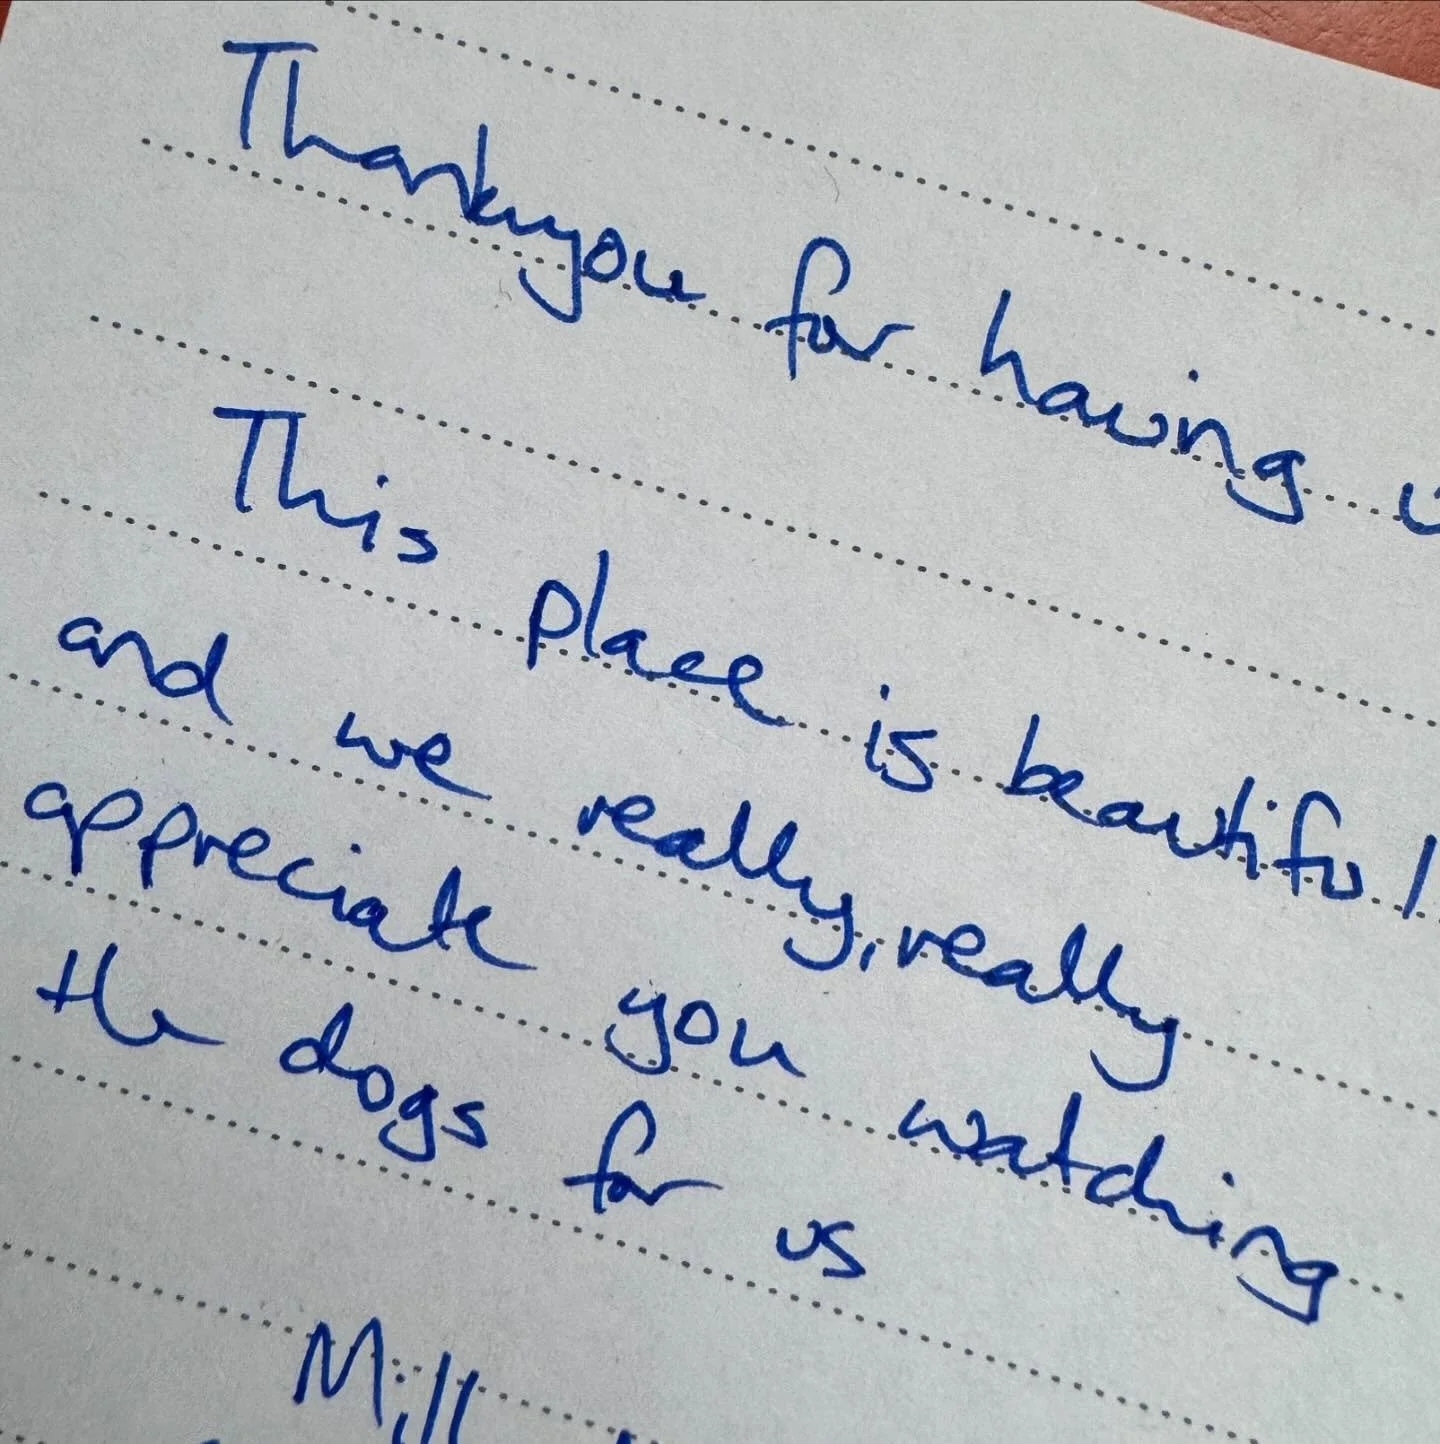 Thankyou for having
This place is beautiful
and we really, really
appreciate you watching
the dogs for us
Mill